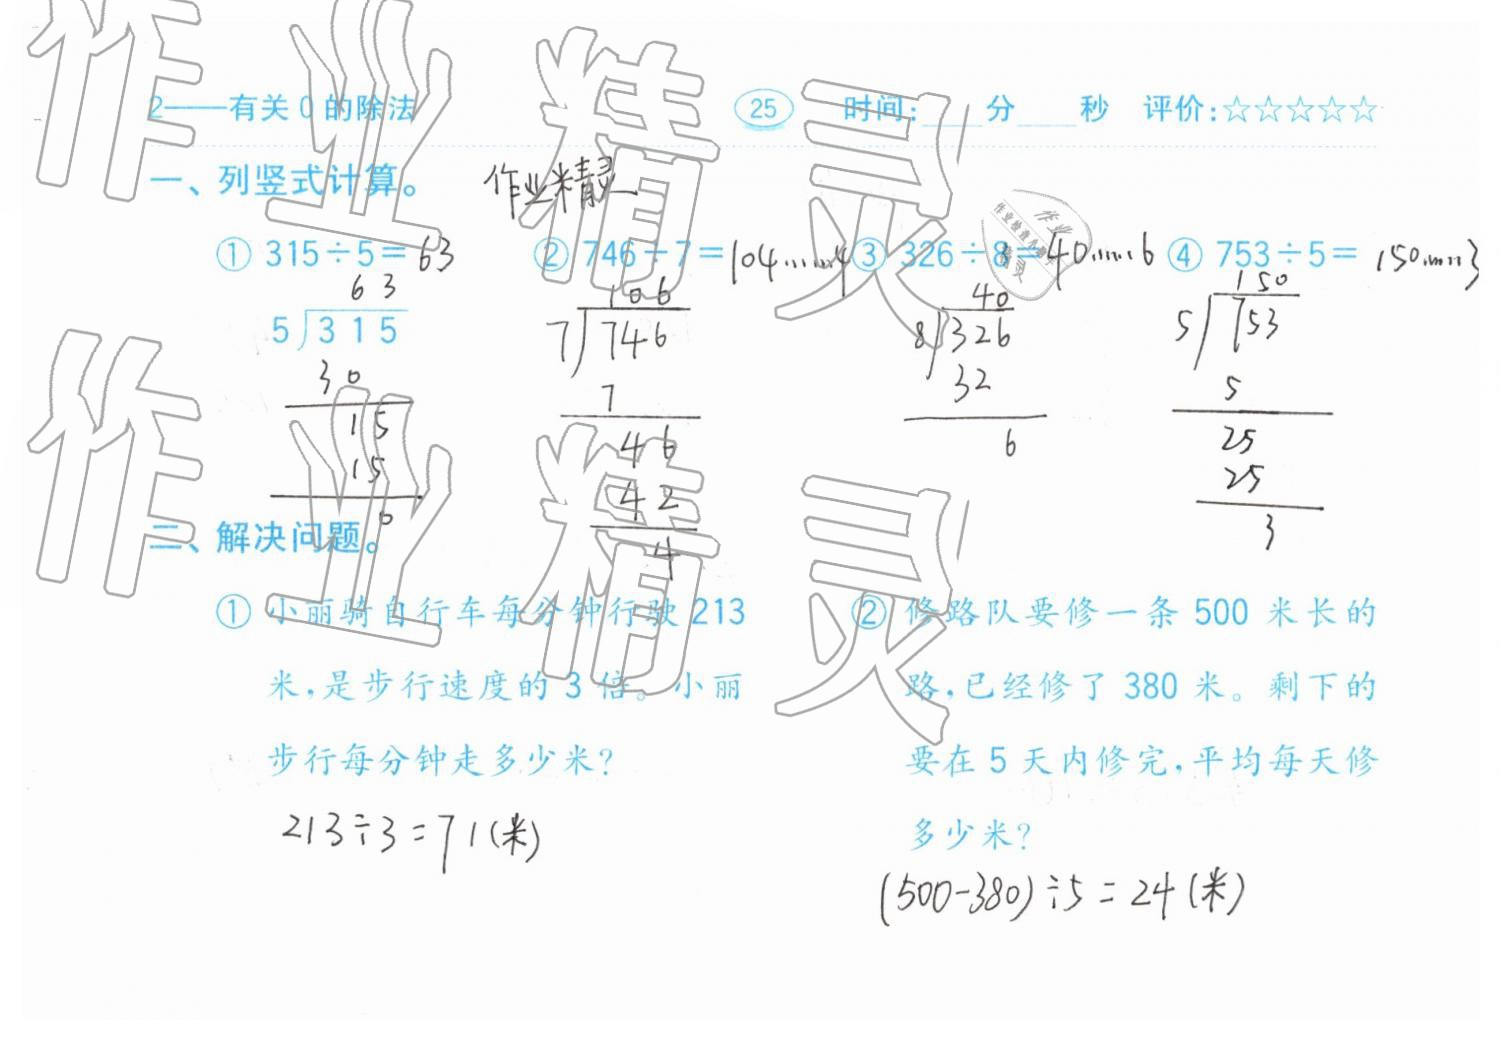 2——有关 0 的除法 25 时间:____分____秒 评价:☆☆☆☆☆
一、列竖式计算。 作业精灵
① 315÷5=63 ② 746÷7=104……4 ③ 326÷8=40……6 ④ 753÷5= 150……3
63
5)315
30
15
15
0
106
7)746
7
46
42
4
40
8)326
32
6
150
5)753
5
25
25
3
二、解决问题。
① 小丽骑自行车每分钟行驶 213
米,是步行速度的 3 倍。小丽
步行每分钟走多少米?
213÷3=71(米)
② 修路队要修一条 500 米长的
路,已经修了 380 米。剩下的
要在 5 天内修完,平均每天修
多少米?
(500-380)÷5=24(米)
作业精灵
作业精灵
作业
作业检查小助手
精灵